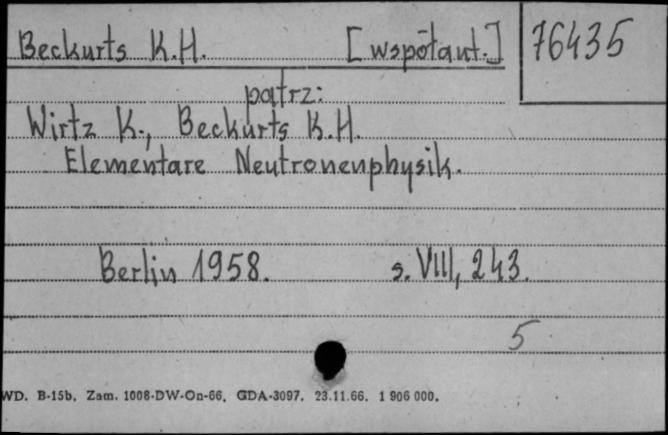 Beckurts K.H. [współaut.] 76435
patrz:
Wirtz K., Beckurts K.H.
Elementare Neutronenphysik.
Berlin 1958. s. VIII, 243.
5
WD. B-15b. Zam. 1008-DW-On-66. GDA-3097. 23.11.66. 1 906 000.